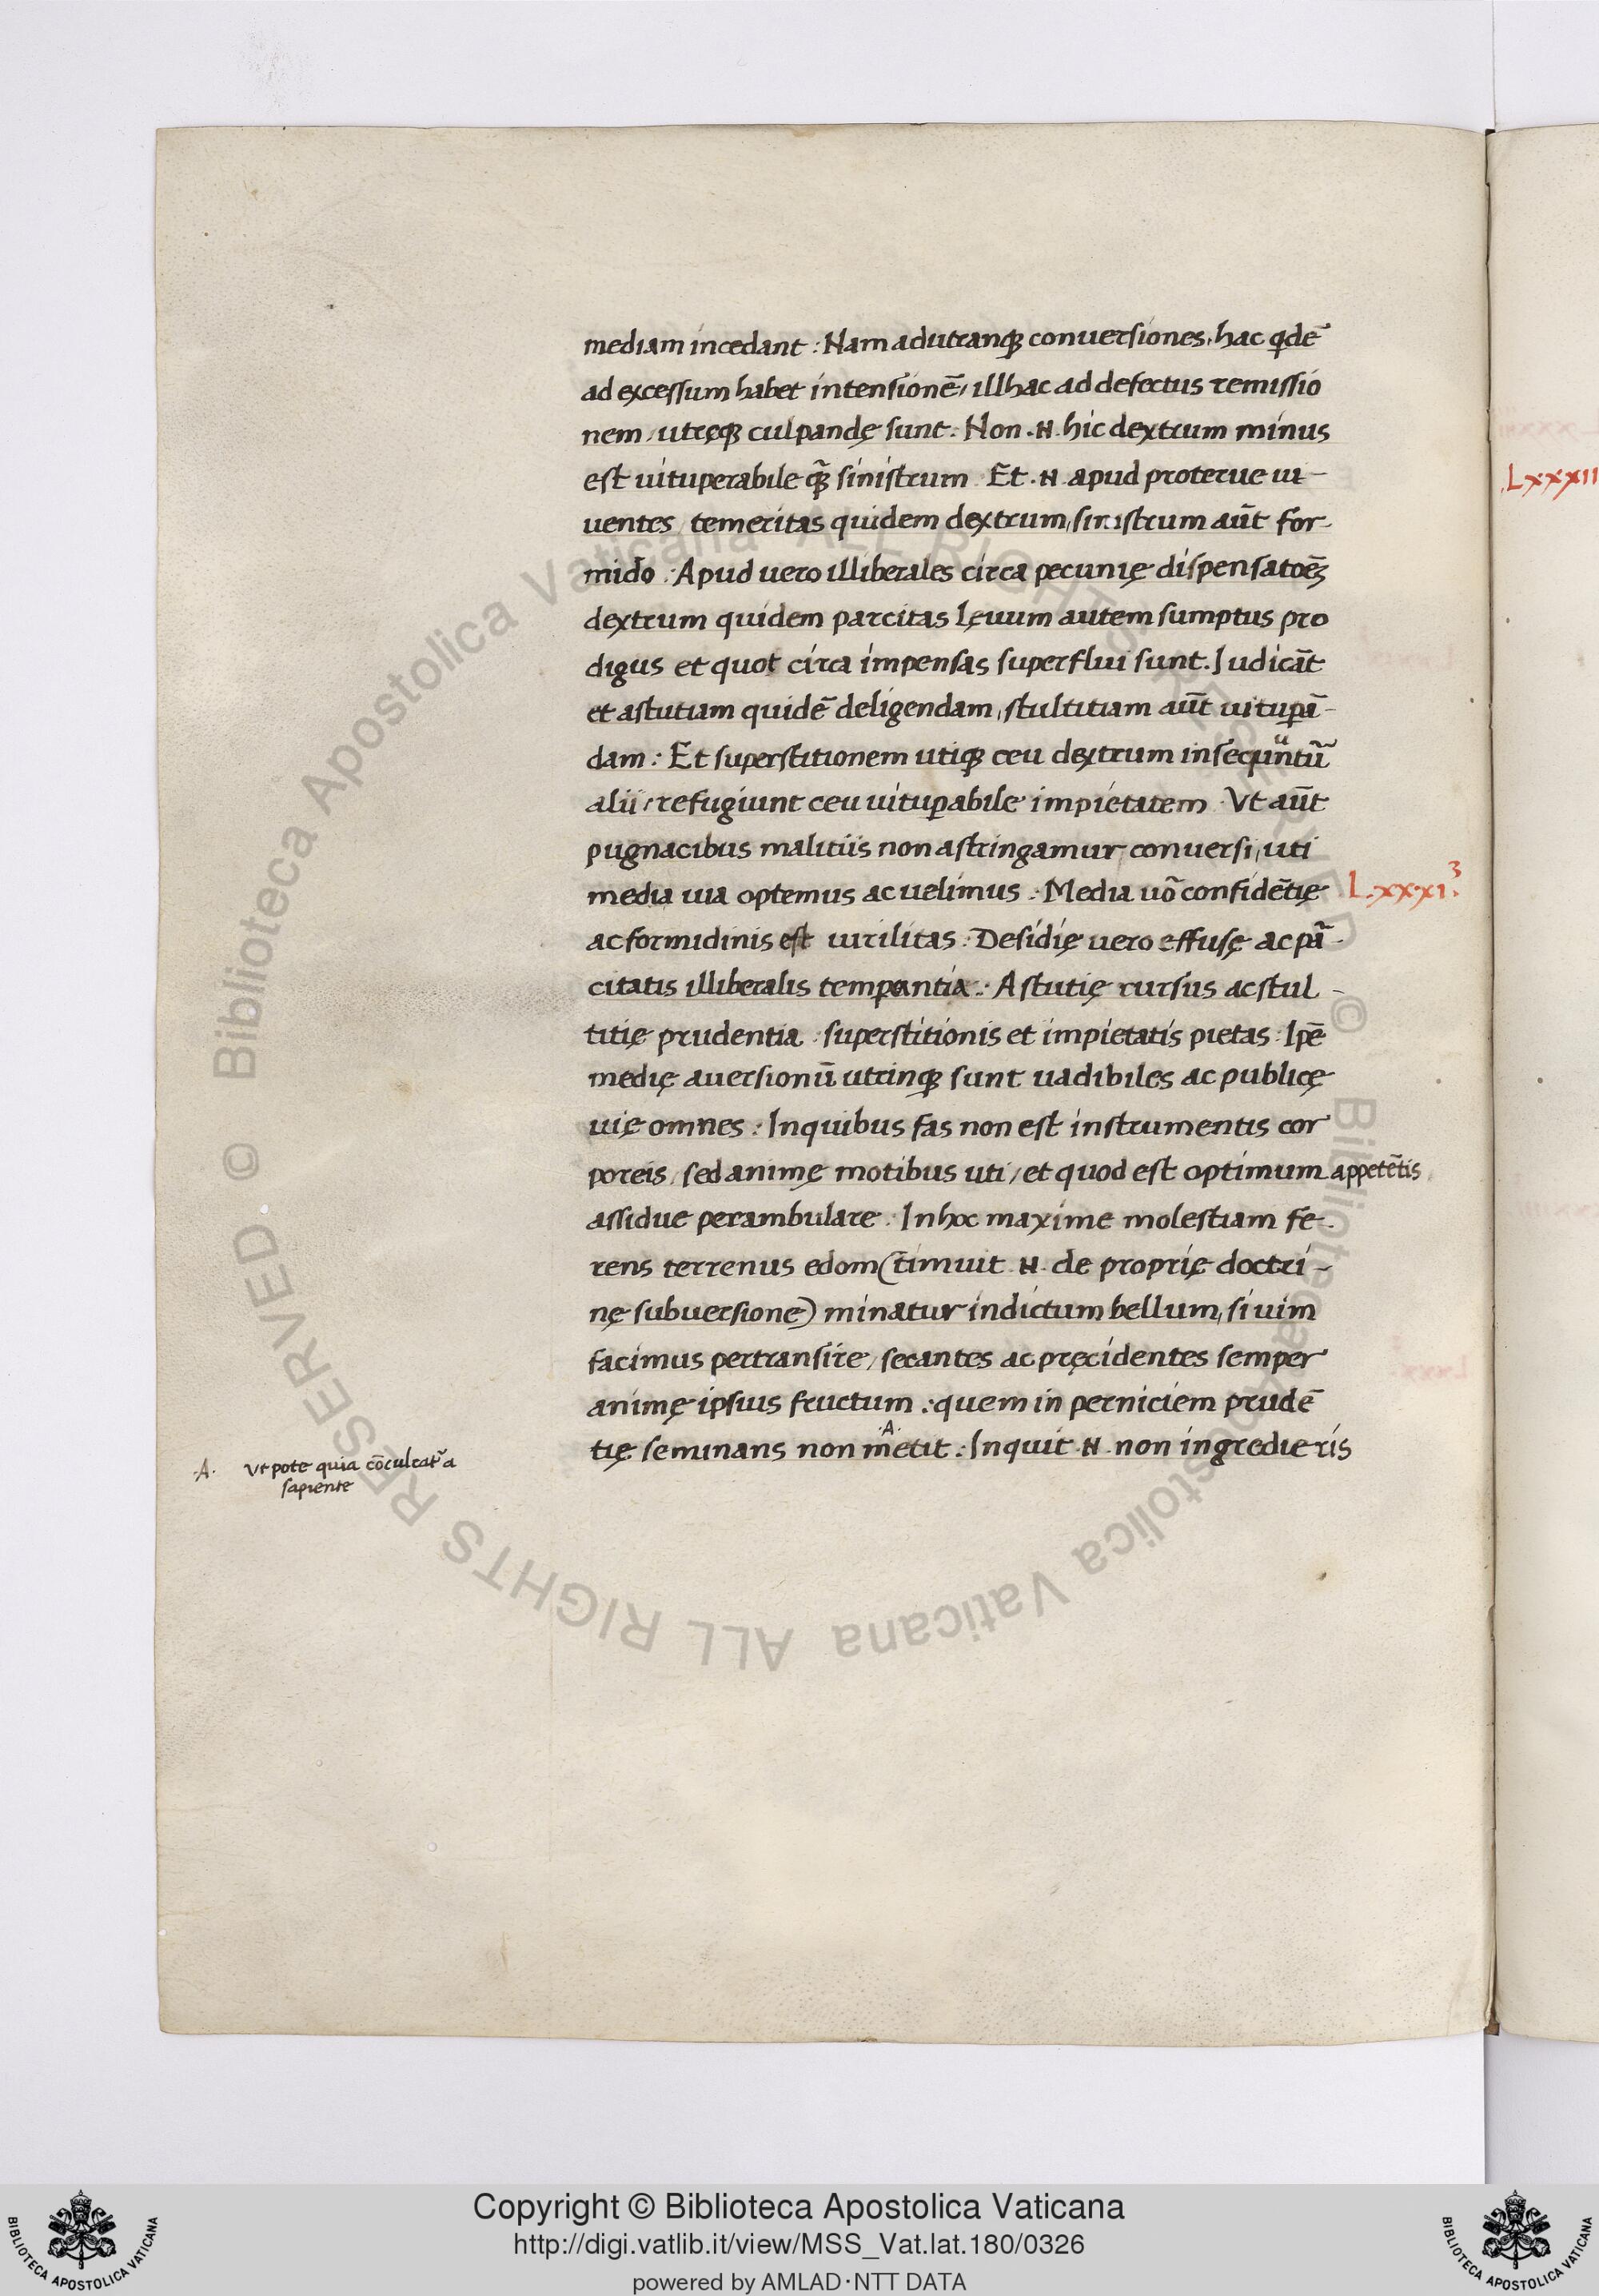 mediam incedant : Nam ad utranq; conuersiones, hac qdē
ad excessum habet intensionē, illhac ad defectus remissio
nem, utręq; culpandę sunt. Non .N. hic dextrum minus
est uituperabile q̃ sinistrum . Et .N. apud proterue ui-
uentes, temeritas quidem dextrum, sinistrum aūt for-
mido . Apud uero illiberales circa pecunię dispensatōēs
dextrum quidem parcitas lęuum autem sumptus pro
digus et quot circa impensas superflui sunt. Judicāt
et astutiam quidē deligendam, stultitiam aūt uitupā-
dam : Et superstitionem utiq; ceu dextrum insequūntũ
alii, refugiunt ceu uitupabile impietatem . Vt aūt
pugnacibus malitiis non astringamur conuersi, uti
media uia optemus ac uelimus . Media uō confidētię
L.xxxi.³
ac formidinis est uirilitas . Desidię uero effusę ac pā-
citatis illiberalis tempantia . Astutię rursus ac stul-
titię prudentia . superstitionis et impietatis pietas . Ipē
medię auersionū utrinq; sunt uadibiles ac publicę
uię omnes : In quibus fas non est instrumentis cor
poreis, sed animę motibus uti, et quod est optimum appetētis
assidue perambulare . In hoc maxime molestiam fe-
rens terrenus edom (timuit .N. de proprię doctri-
nę subuersione) minatur indictum bellum, si uim
facimus pertransire, secantes ac pręcidentes semper
animę ipsius fructum : quem in perniciem prudē
.A.
tię seminans non metit : Inquit .N. non ingredieris
.A. Vt pote quia cōculcat' a
sapiente
Lxxxii
Copyright © Biblioteca Apostolica Vaticana
http://digi.vatlib.it/view/MSS_Vat.lat.180/0326
powered by AMLAD·NTT DATA
BIBLIOTECA APOSTOLICA VATICANA
BIBLIOTECA APOSTOLICA VATICANA
© Biblioteca Apostolica Vaticana ALL RIGHTS RESERVED © Biblioteca Apostolica Vaticana ALL RIGHTS RESERVED